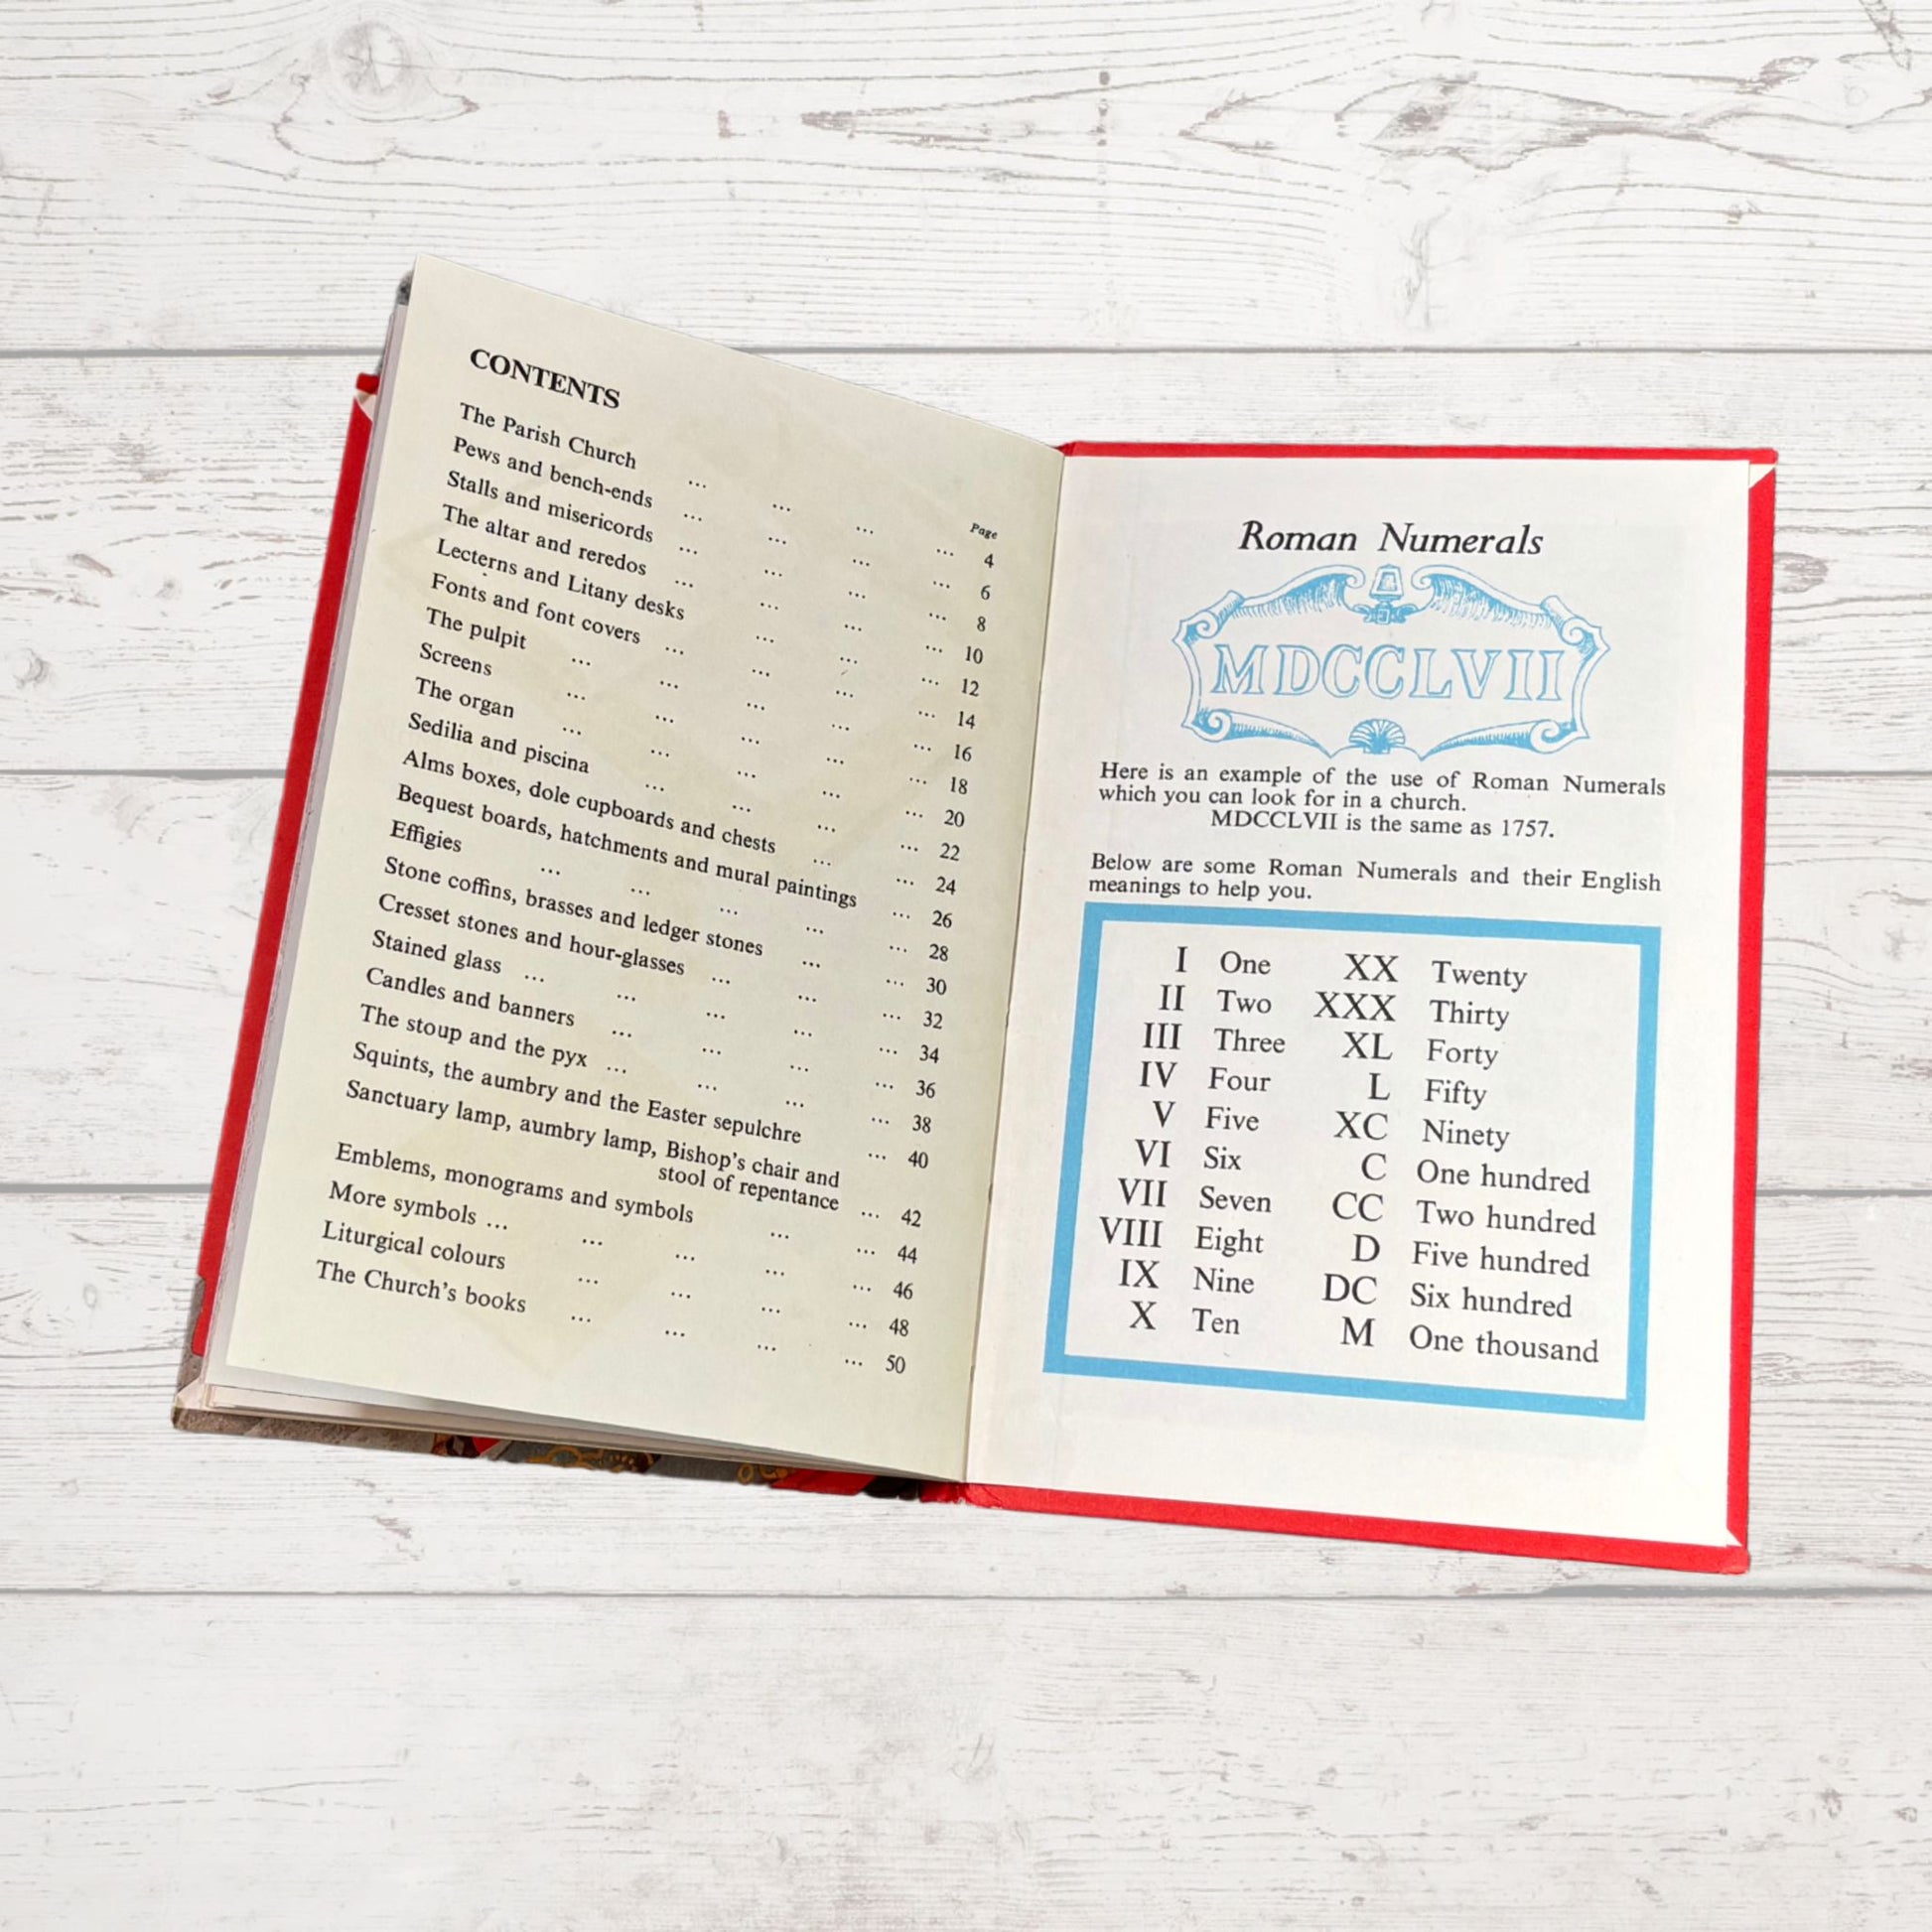 CONTENTS
Page
The Parish Church ... ... ... ... 4
Pews and bench-ends ... ... ... ... 6
Stalls and misericords ... ... ... ... 8
The altar and reredos ... ... ... ... 10
Lecterns and Litany desks ... ... ... 12
Fonts and font covers ... ... ... ... 14
The pulpit ... ... ... ... ... 16
Screens ... ... ... ... ... 18
The organ ... ... ... ... ... 20
Sedilia and piscina ... ... ... ... 22
Alms boxes, dole cupboards and chests ... ... 24
Bequest boards, hatchments and mural paintings ... 26
Effigies ... ... ... ... ... 28
Stone coffins, brasses and ledger stones ... ... 30
Cresset stones and hour-glasses ... ... ... 32
Stained glass ... ... ... ... ... 34
Candles and banners ... ... ... ... 36
The stoup and the pyx ... ... ... ... 38
Squints, the aumbry and the Easter sepulchre ... 40
Sanctuary lamp, aumbry lamp, Bishop's chair and
stool of repentance ... 42
Emblems, monograms and symbols ... ... 44
More symbols ... ... ... ... ... 46
Liturgical colours ... ... ... ... 48
The Church's books ... ... ... ... 50
Roman Numerals
MDCCLVII
Here is an example of the use of Roman Numerals
which you can look for in a church.
MDCCLVII is the same as 1757.
Below are some Roman Numerals and their English
meanings to help you.
I One XX Twenty
II Two XXX Thirty
III Three XL Forty
IV Four L Fifty
V Five XC Ninety
VI Six C One hundred
VII Seven CC Two hundred
VIII Eight D Five hundred
IX Nine DC Six hundred
X Ten M One thousand